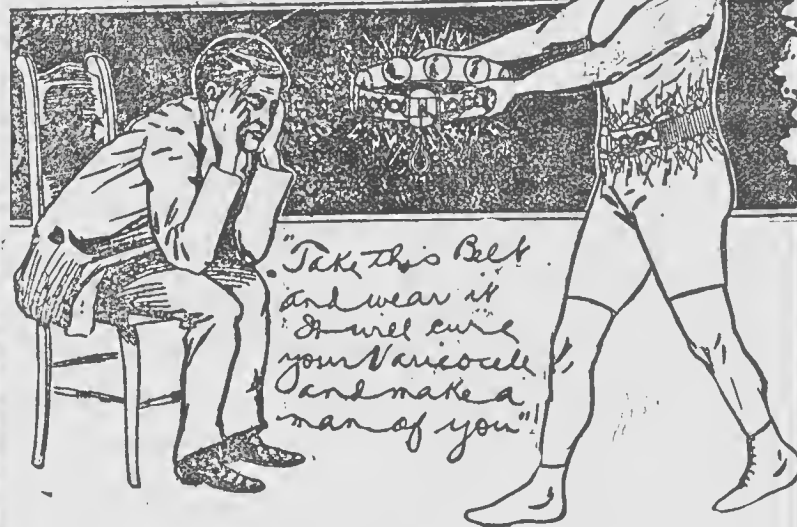 "Take this Belt
and wear it
It will cure
your Varicocele
and make a
man of you"